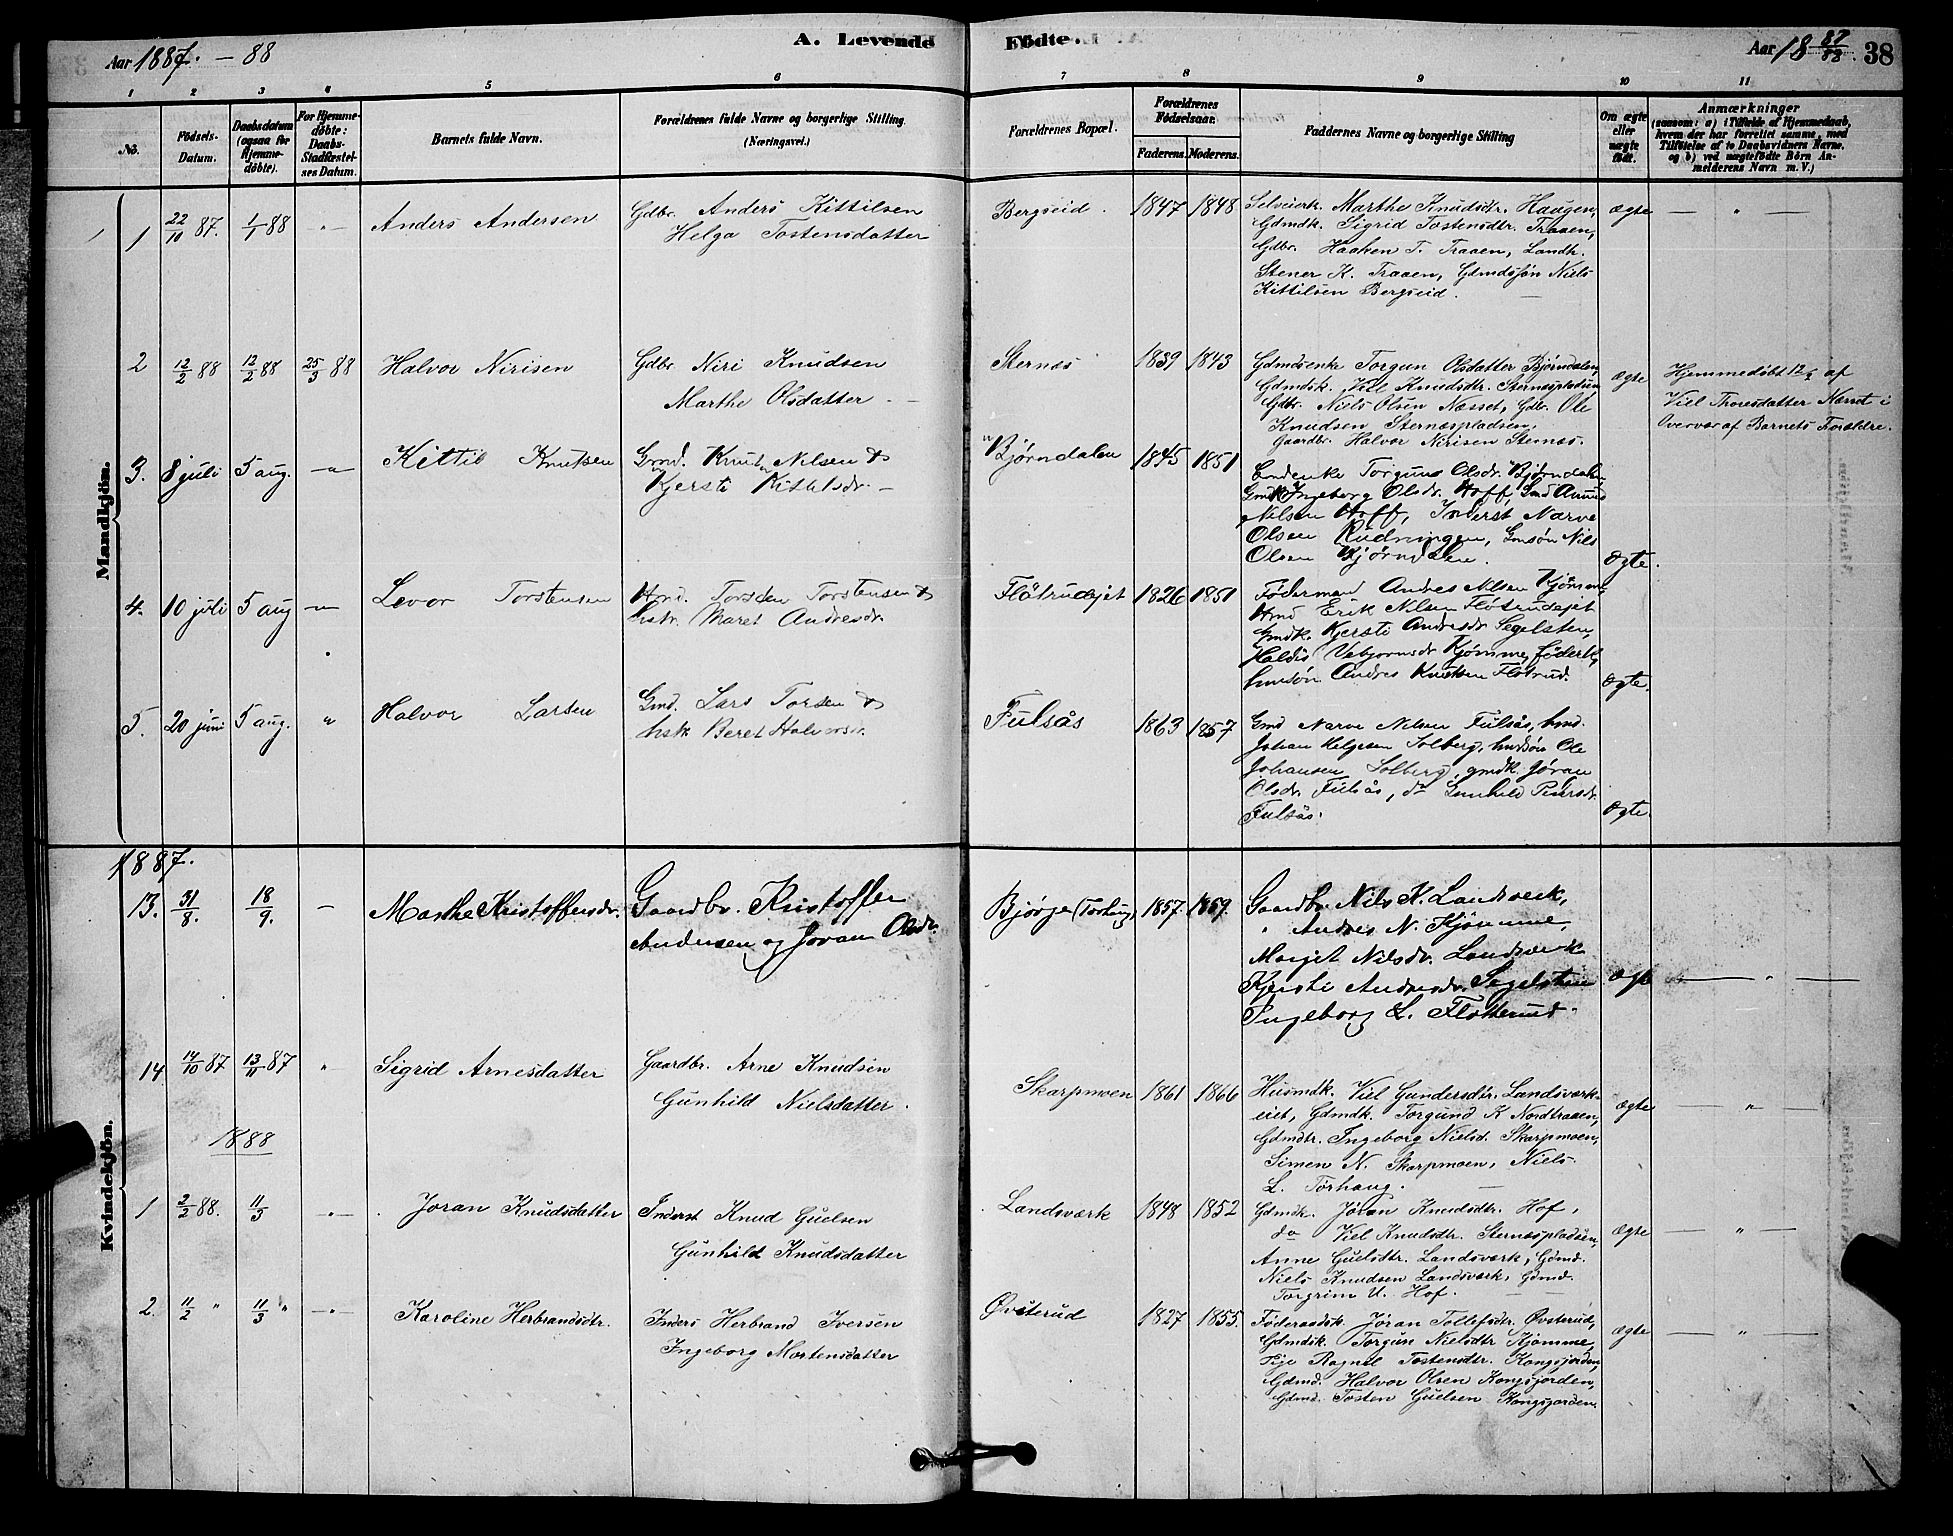 Aar 1887. - 88
A. Levende
Födte.
Aar 18 87/88. 38
1 2 3 4 5 6 7 8 9 10 11
No.
Födsels-Datum.
Daabsdatum (ogsaa for Hjemme-döbte).
For Hjemme-döbte: Daabs-Stadfæstel-ses Datum.
Barnets fulde Navn.
Forældrenes fulde Navne og borgerlige Stilling.
(Næringsvei.)
Forældrenes Bopæl.
Forældrenes Födselsaar.
Faderens. Moderens.
Faddernes Navne og borgerlige Stilling
Om ægte eller uægte födt.
Anmærkninger
(saasom: a) i Tilfælde af Hjemmedaab,
hvem der har forrettet samme, med
Tilföielse af to Daabsvidners Navne,
og b) ved uægtefödte Börn An-
melderens Navn m. V.)
Mandkjön.
1 22/10 87. 1/1 88 Anders Andersen
Gdbr. Anders Kittilsen
Helga Tostensdatter
Bergseid. 1847 1848
Selveierk. Marthe Knudsdr. Haugen,
Gdmdk. Sigrid Tostensdtr. Traaen,
Gdbr. Haaken T. Traaen, Landh.
Stener K. Traaen, Gdmdssøn Niels
Kittilsen Bergseid.
ægte — " —
2 12/2 88 12/2 88 25/3 88 Halvor Nirisen
Gdbr. Niri Knudsen
Marthe Olsdatter. —
Sternæs 1839 1843
Gdmdsenke Torgun Olsdatter Bjørndalen,
Gdmdsk. Viel Knudsdtr. Sternæspladsen
Gdbr. Niels Olsen Næsset, Gdbr. Ole
Knudsen Sternæspladsen,
Gaardbr. Halvor Nirisen Sternæs.
ægte
Hjemmedøbt 12/2 af
Viel Thoresdatter Næset i
Overvær af Barnets Forældre.
3. 8 juli 5 aug. —"— Kittil Knutsen
Gmd. Knud Nilsen &
Kjersti Kittilsdr. —
Bjørndalen 1845 1851
Torguns Olsdr. Bjørndalen
Gmdk Ingeborg Olsdr. Hoff, Gmd Amund
Nilsen Hoff, Inderst Narve
Olsen Rudningen, Gmsøn Nils
Olsen Bjørndalen.
Ægte.
4. 10 juli 5 aug —"— Levor Torstensen
Hmd. Torsten Torstensen &
hstr. Maret Andresdr.
Flåtrudejet 1826 1851
Føderman Andres Nilsen Kjømme,
Hmd Erik Nilsen Fløtrudejet
Gmdk. Kjersti Andresdr. Segelsten,
Haldis Vebjørnsdr Kjømme, föderk,
hmsøn Andres Knutsen Fløtrud.
Ægte.
5. 20 juni 5 aug. " Halvor Larsen
Gmd. Lars Torsen &
hstr Beret Halvorsr.
Fulsås 1863 1857
Gmd Narve Nilsen Fulsås, hmd.
Johan Helgesen Solberg, hmdsøn Ole
Johansen Solberg, gmdk. Jöran
Olsdr. Fulsås, do Gunhild Pedersdr.
Fulsås.
Ægte.
1887.
Kvindekjön.
13. 31/8. 18/9. — Marthe Kristoffersdr.
Gaardbr. Kristoffer
Andersen og Joran Olsdr.
Bjørge (Torhaug) 1857 1859.
Gaardbr. Nils K. Landsverk,
" Andres N. Kjømme,
Margit Nilsdr. Landsverk
Kjersti Andresdr. Segelstein
Ingeborg L. Flotterud.
Ægte — " —
14 14/10 87 13/11 87 " Sigrid Arnesdatter
Gaardbr. Arne Knudsen
Gunhild Nielsdatter.
Skarpmoen 1861 1866
Husmdk. Viel Gundersdtr. Landsværk-
eiet, Gdmdk. Torgund K Nordtraaen,
Gdmdtr. Ingeborg Nielsd. Skarpmoen,
Simen N. Skarpmoen, Niels
L. Torhaug.
ægte — " —
1888
1 2/2 88. 11/3 —"— Joran Knudsdatter
Inderst Knud Guelsen
Gunhild Knudsdatter
Landsværk 1848 1852
Gdmdk. Jöran Knudsdtr. Hof,
do Viel Knudsdtr. Sternæspladsen,
Anne Guelsdtr. Landsværk, Gdmd.
Niels Knudsen Landsværk, Gdmd.
Torgrim U. Hof.
ægte — " —
2. 11/2 " 11/3 " —"— Karoline Herbrandsdtr.
Inders Herbrand Iversen
Ingeborg Mortensdatter
Øvsterud 1827 1855.
Föderaadsk. Jöran Tollefsdtr. Øvsterud,
Gdmdsk. Torgun Nielsdtr Kjömme,
Pige Ragnil Tostensdtr. Kongsjorden,
Gdmd. Halvor Olsen Kongsjorden,
Gdmd. Tosten Guelsen Kongsjorden.
ægte — " —